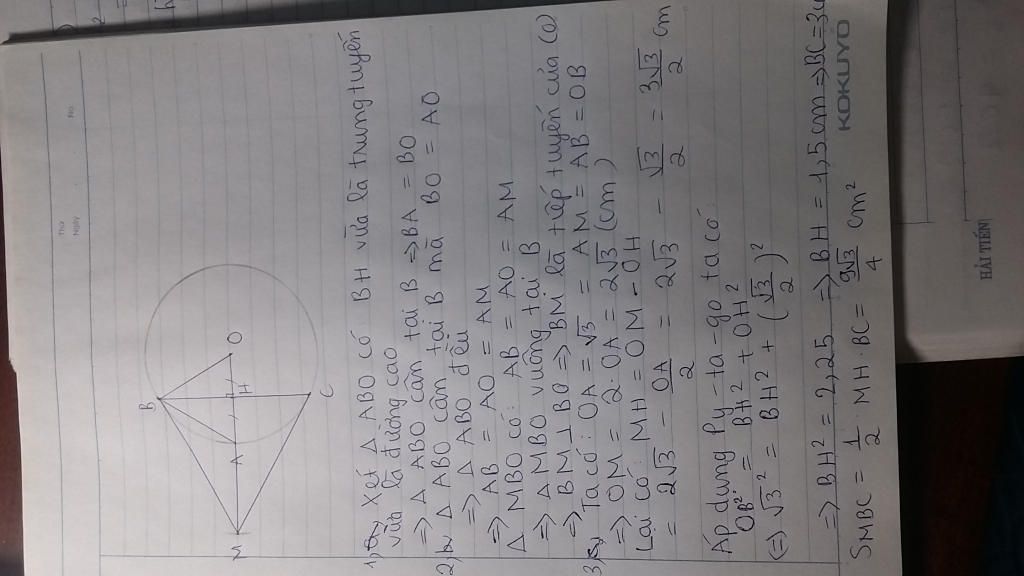 Thứ
Ngày
No.
B
M
A
H
O
C
1, Xét Δ ABO có BH vừa là trung tuyến
vừa là đường cao
=> Δ ABO cân tại B => BA = BO
2, Δ ABO cân tại B mà BO = AO
=> Δ ABO đều
=> AB = AO = AM
Δ MBO có: AB = AO = AM
=> ΔMBO vuông tại B
=> BM ⊥ BO => BM là tiếp tuyến của (O)
3, Ta có: OA = √3 = AM = AB = OB
=> OM = 2.OA = 2√3 (cm)
Lại có: MH = OM - OH
= 2√3 - OA/2 = 2√3 - √3/2 = 3√3/2 cm
Áp dụng Py-ta-go ta có:
OB² = BH² + OH²
(=) √3² = BH² + (√3/2)²
=> BH² = 2,25 => BH = 1,5cm => BC = 3
S MBC = 1/2 . MH . BC = 9√3/4 cm²
KOKUYO
HẢI TIẾN